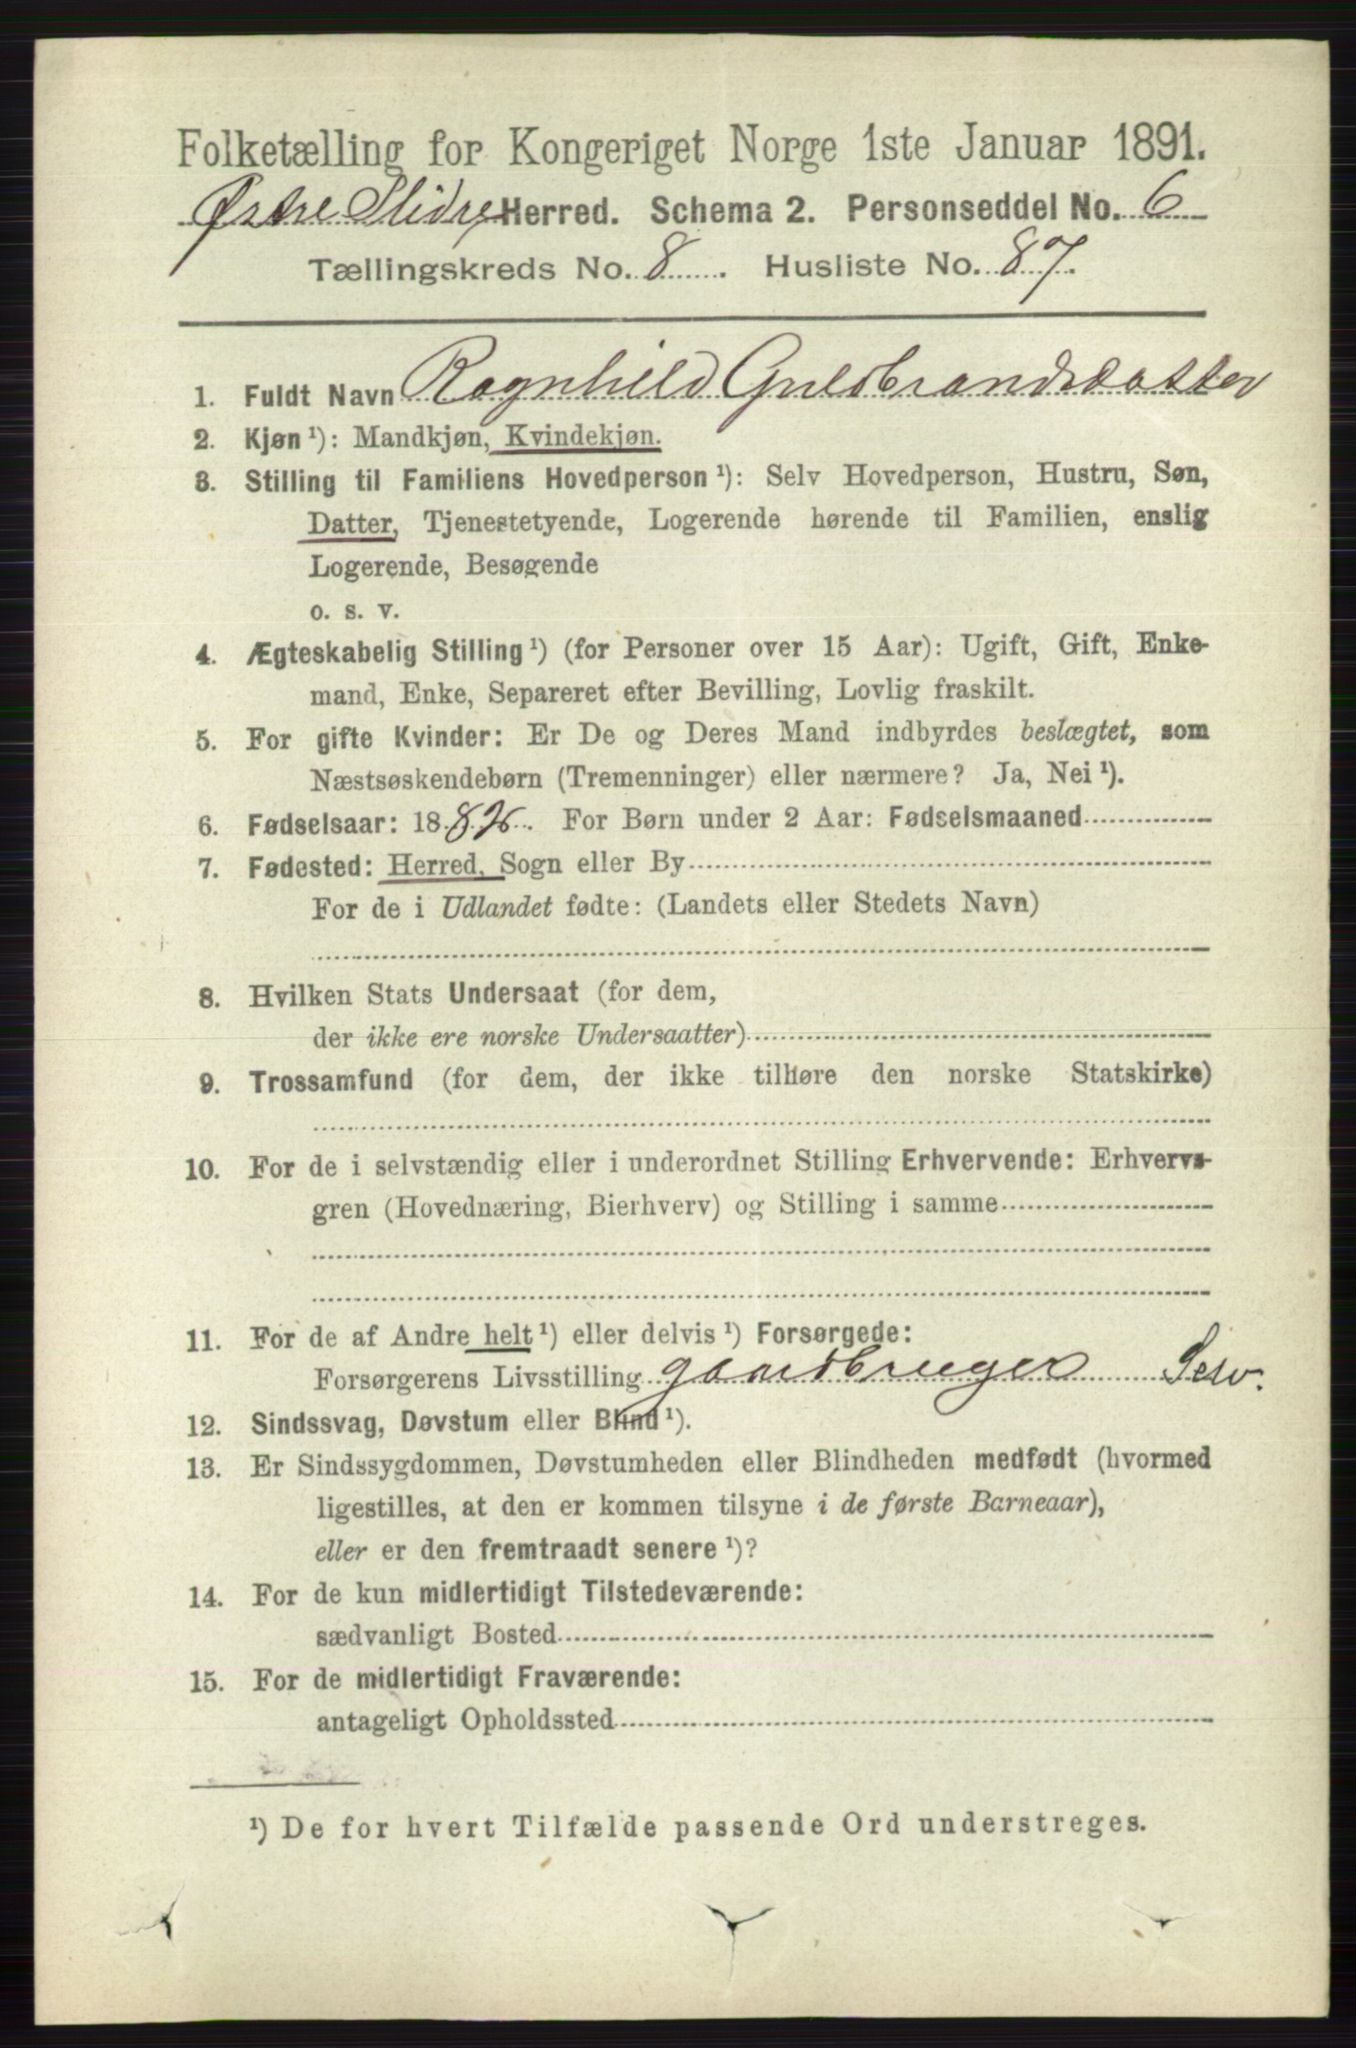 Folketælling for Kongeriget Norge 1ste Januar 1891.
Østre Slidre Herred. Schema 2. Personseddel No. 6
Tællingskreds No. 8. Husliste No. 87.
1. Fuldt Navn Ragnhild Guldbrandsdatter
2. Kjøn ¹): Mandkjøn, Kvindekjøn.
3. Stilling til Familiens Hovedperson ¹): Selv Hovedperson, Hustru, Søn,
Datter, Tjenestetyende, Logerende hørende til Familien, enslig
Logerende, Besøgende
o. s. v.
4. Ægteskabelig Stilling ¹) (for Personer over 15 Aar): Ugift, Gift, Enke-
mand, Enke, Separeret efter Bevilling, Lovlig fraskilt.
5. For gifte Kvinder: Er De og Deres Mand indbyrdes beslægtet, som
Næstsøskendebørn (Tremenninger) eller nærmere? Ja, Nei ¹).
6. Fødselsaar: 18 For Børn under 2 Aar: Fødselsmaaned
7. Fødested: Herred, Sogn eller By
For de i Udlandet fødte: (Landets eller Stedets Navn)
8. Hvilken Stats Undersaat (for dem,
der ikke ere norske Undersaatter)
9. Trossamfund (for dem, der ikke tilhøre den norske Statskirke)
10. For de i selvstændig eller i underordnet Stilling Erhvervende: Erhvervs-
gren (Hovednæring, Bierhverv) og Stilling i samme
11. For de af Andre helt ¹) eller delvis ¹) Forsørgede:
Forsørgerens Livsstilling gaardbruger Selv.
12. Sindssvag, Døvstum eller Blind ¹).
13. Er Sindssygdommen, Døvstumheden eller Blindheden medfødt (hvormed
ligestilles, at den er kommen tilsyne i de første Barneaar),
eller er den fremtraadt senere ¹)?
14. For de kun midlertidigt Tilstedeværende:
sædvanligt Bosted
15. For de midlertidigt Fraværende:
antageligt Opholdssted
¹) De for hvert Tilfælde passende Ord understreges.